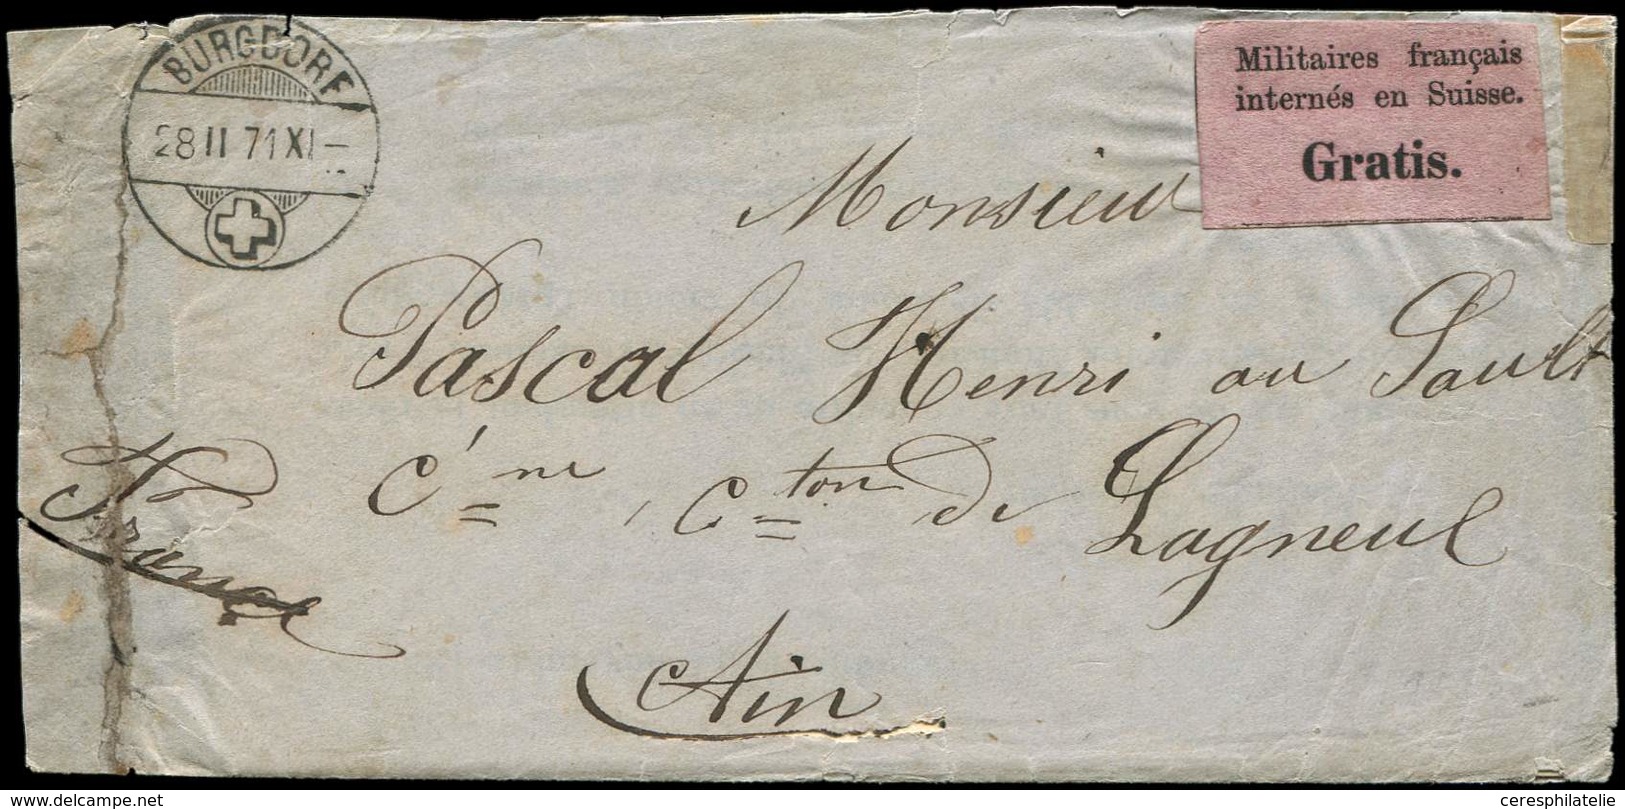 BURGDORF
28 II 71 XI
Militaires français
internés en Suisse.
Gratis.
Monsieur
Pascal Henri au Sault
C'ne, Cton de Lagneul
France
Ain
delcampe.net
ceresphilatelie